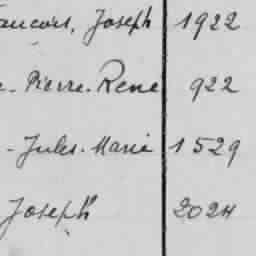 Joseph 1922
Pierre-René 922
- Jules-Marie 1529
Joseph 2024